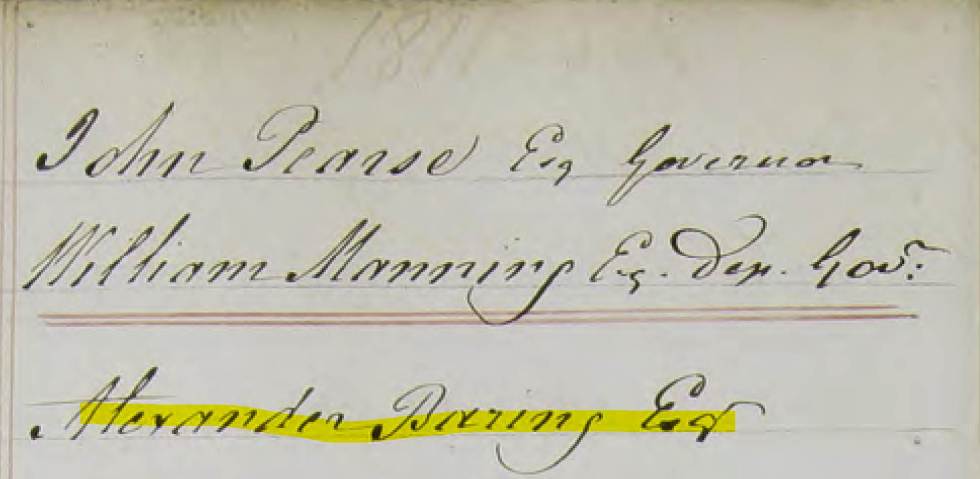 John Pearse Esq Governor
William Manning Esq. Dep. Govr:
Alexander Baring Esq